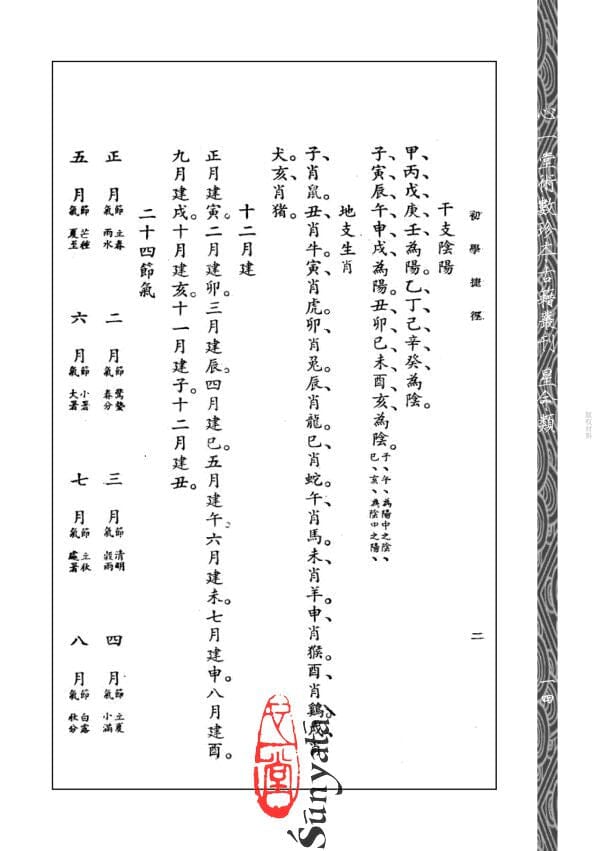 心一堂術數珍本古籍叢刊 星命類
一四
初學捷徑
二
干支陰陽
甲、丙、戊、庚、壬為陽。乙、丁、己、辛、癸為陰。
子、寅、辰、午、申、戌為陽。丑、卯、巳、未、酉、亥為陰。子、午、為陽中之陰、巳、亥、為陰中之陽、
地支生肖
子肖鼠。丑肖牛。寅肖虎。卯肖兔。辰肖龍。巳肖蛇。午肖馬。未肖羊。申肖猴。酉肖鷄。戌肖
犬。亥肖猪。
十二月建
正月建寅。二月建卯。三月建辰。四月建巳。五月建午。六月建未。七月建申。八月建酉。
九月建戌。十月建亥。十一月建子。十二月建丑。
二十四節氣
正月 節立春 氣雨水 二月 節驚蟄 氣春分 三月 節清明 氣穀雨 四月 節立夏 氣小滿
五月 節芒種 氣夏至 六月 節小暑 氣大暑 七月 節立秋 氣處暑 八月 節白露 氣秋分
Śūnyatā